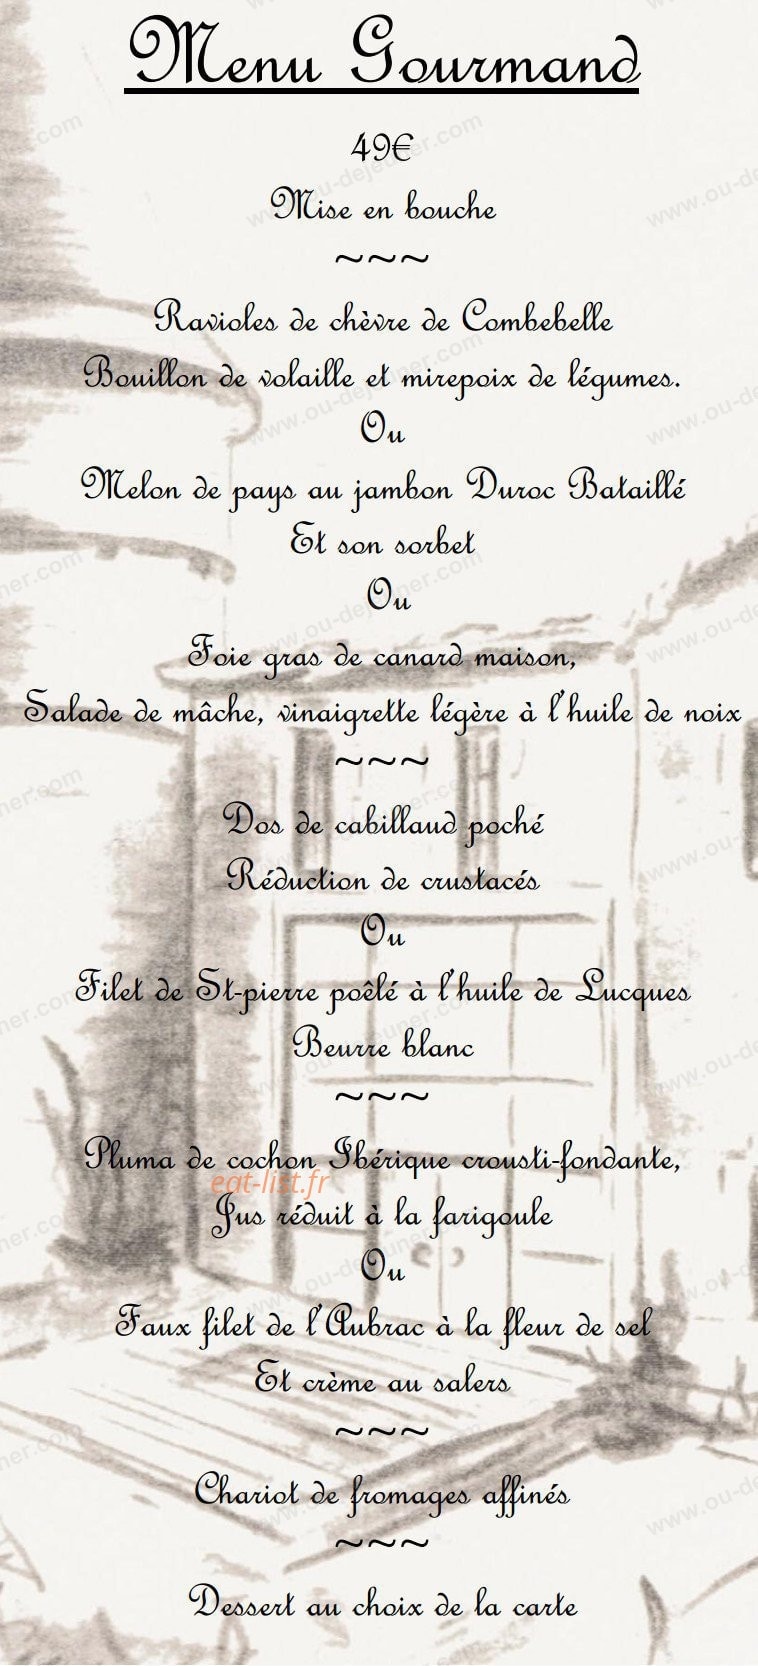 Menu Gourmand
49€
Mise en bouche
~~~
Ravioles de chèvre de Combebelle
Bouillon de volaille et mirepoix de légumes.
Ou
Melon de pays au jambon Duroc Bataillé
Et son sorbet
Ou
Foie gras de canard maison,
Salade de mâche, vinaigrette légère à l'huile de noix
~~~
Dos de cabillaud poché
Réduction de crustacés
Ou
Filet de St-pierre poêlé à l'huile de Lucques
Beurre blanc
~~~
Pluma de cochon Ibérique crousti-fondante,
eat-list.fr
Jus réduit à la farigoule
Ou
Faux filet de l'Aubrac à la fleur de sel
Et crème au salers
~~~
Chariot de fromages affinés
~~~
Dessert au choix de la carte
www.ou-dejeuner.com